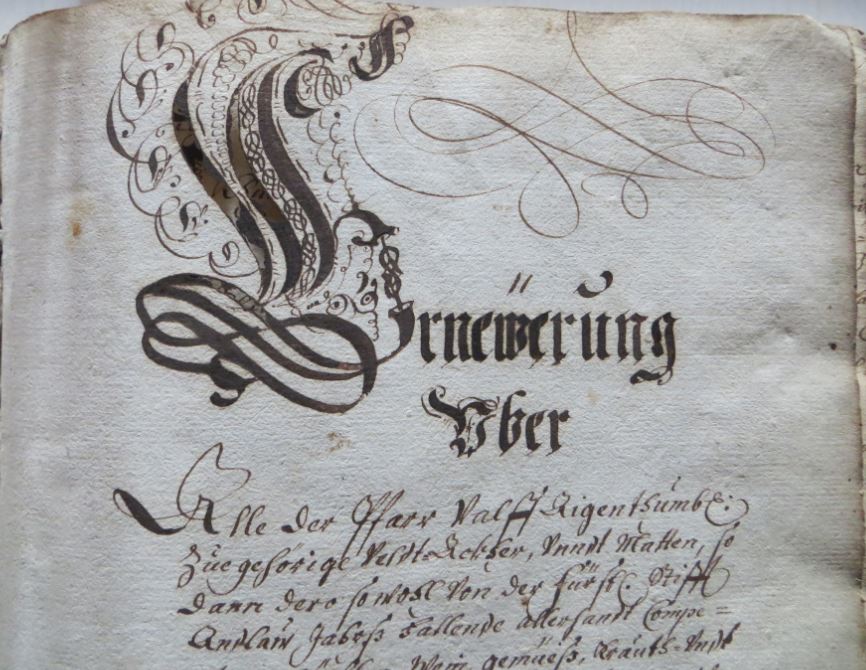 Ernëwerŭng
Vber
Alle der Pfarr Valff Eigenthumbl:
Zuegehörige Veldt=Eckher, Vnndt Matten, so
dann dero so wohl von der fürstl: Stifft
Andlaw Jahrß fallende allerhandt Compe=
Wein, gemüeß, Kräuth= Vndt